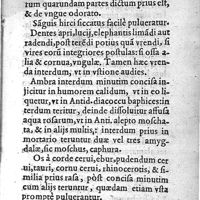 rum quarundam partes dictum prius est,
& de vngue odorato.
Sãguis hirci siccatus facile pulueratur.
Dentes apri, lucij, elephantis limãdi aut
radendi, post teredi potius quã vrendi, si
vires eorũ integriores postulas: sic ossa a-
lia & cornua, vngulæ. Tamen hæc vren-
da interdum, vt in vstione audies.
Ambra interdum minutim concisa in-
ijcitur in humorem calidum, vt in eo li-
quetur, vt in Antid. diacoccu baphices: in
terdum teritur, deinde dissoluitur affusa
aqua rosarum, vt in Anti. alepto moscha-
ta, & in alijs multis, interdum prius in
mortario teruntur duæ vel tres amyg-
dalæ, sic moschus, caphura.
Os à corde cerui, ebur, pudendum cer
ui, tauri, cornu cerui, rhinocerotis, & si-
milia prius rasa, post concisa minutim
cum alijs teruntur, quædam etiam vsta
promptè puluerantur.